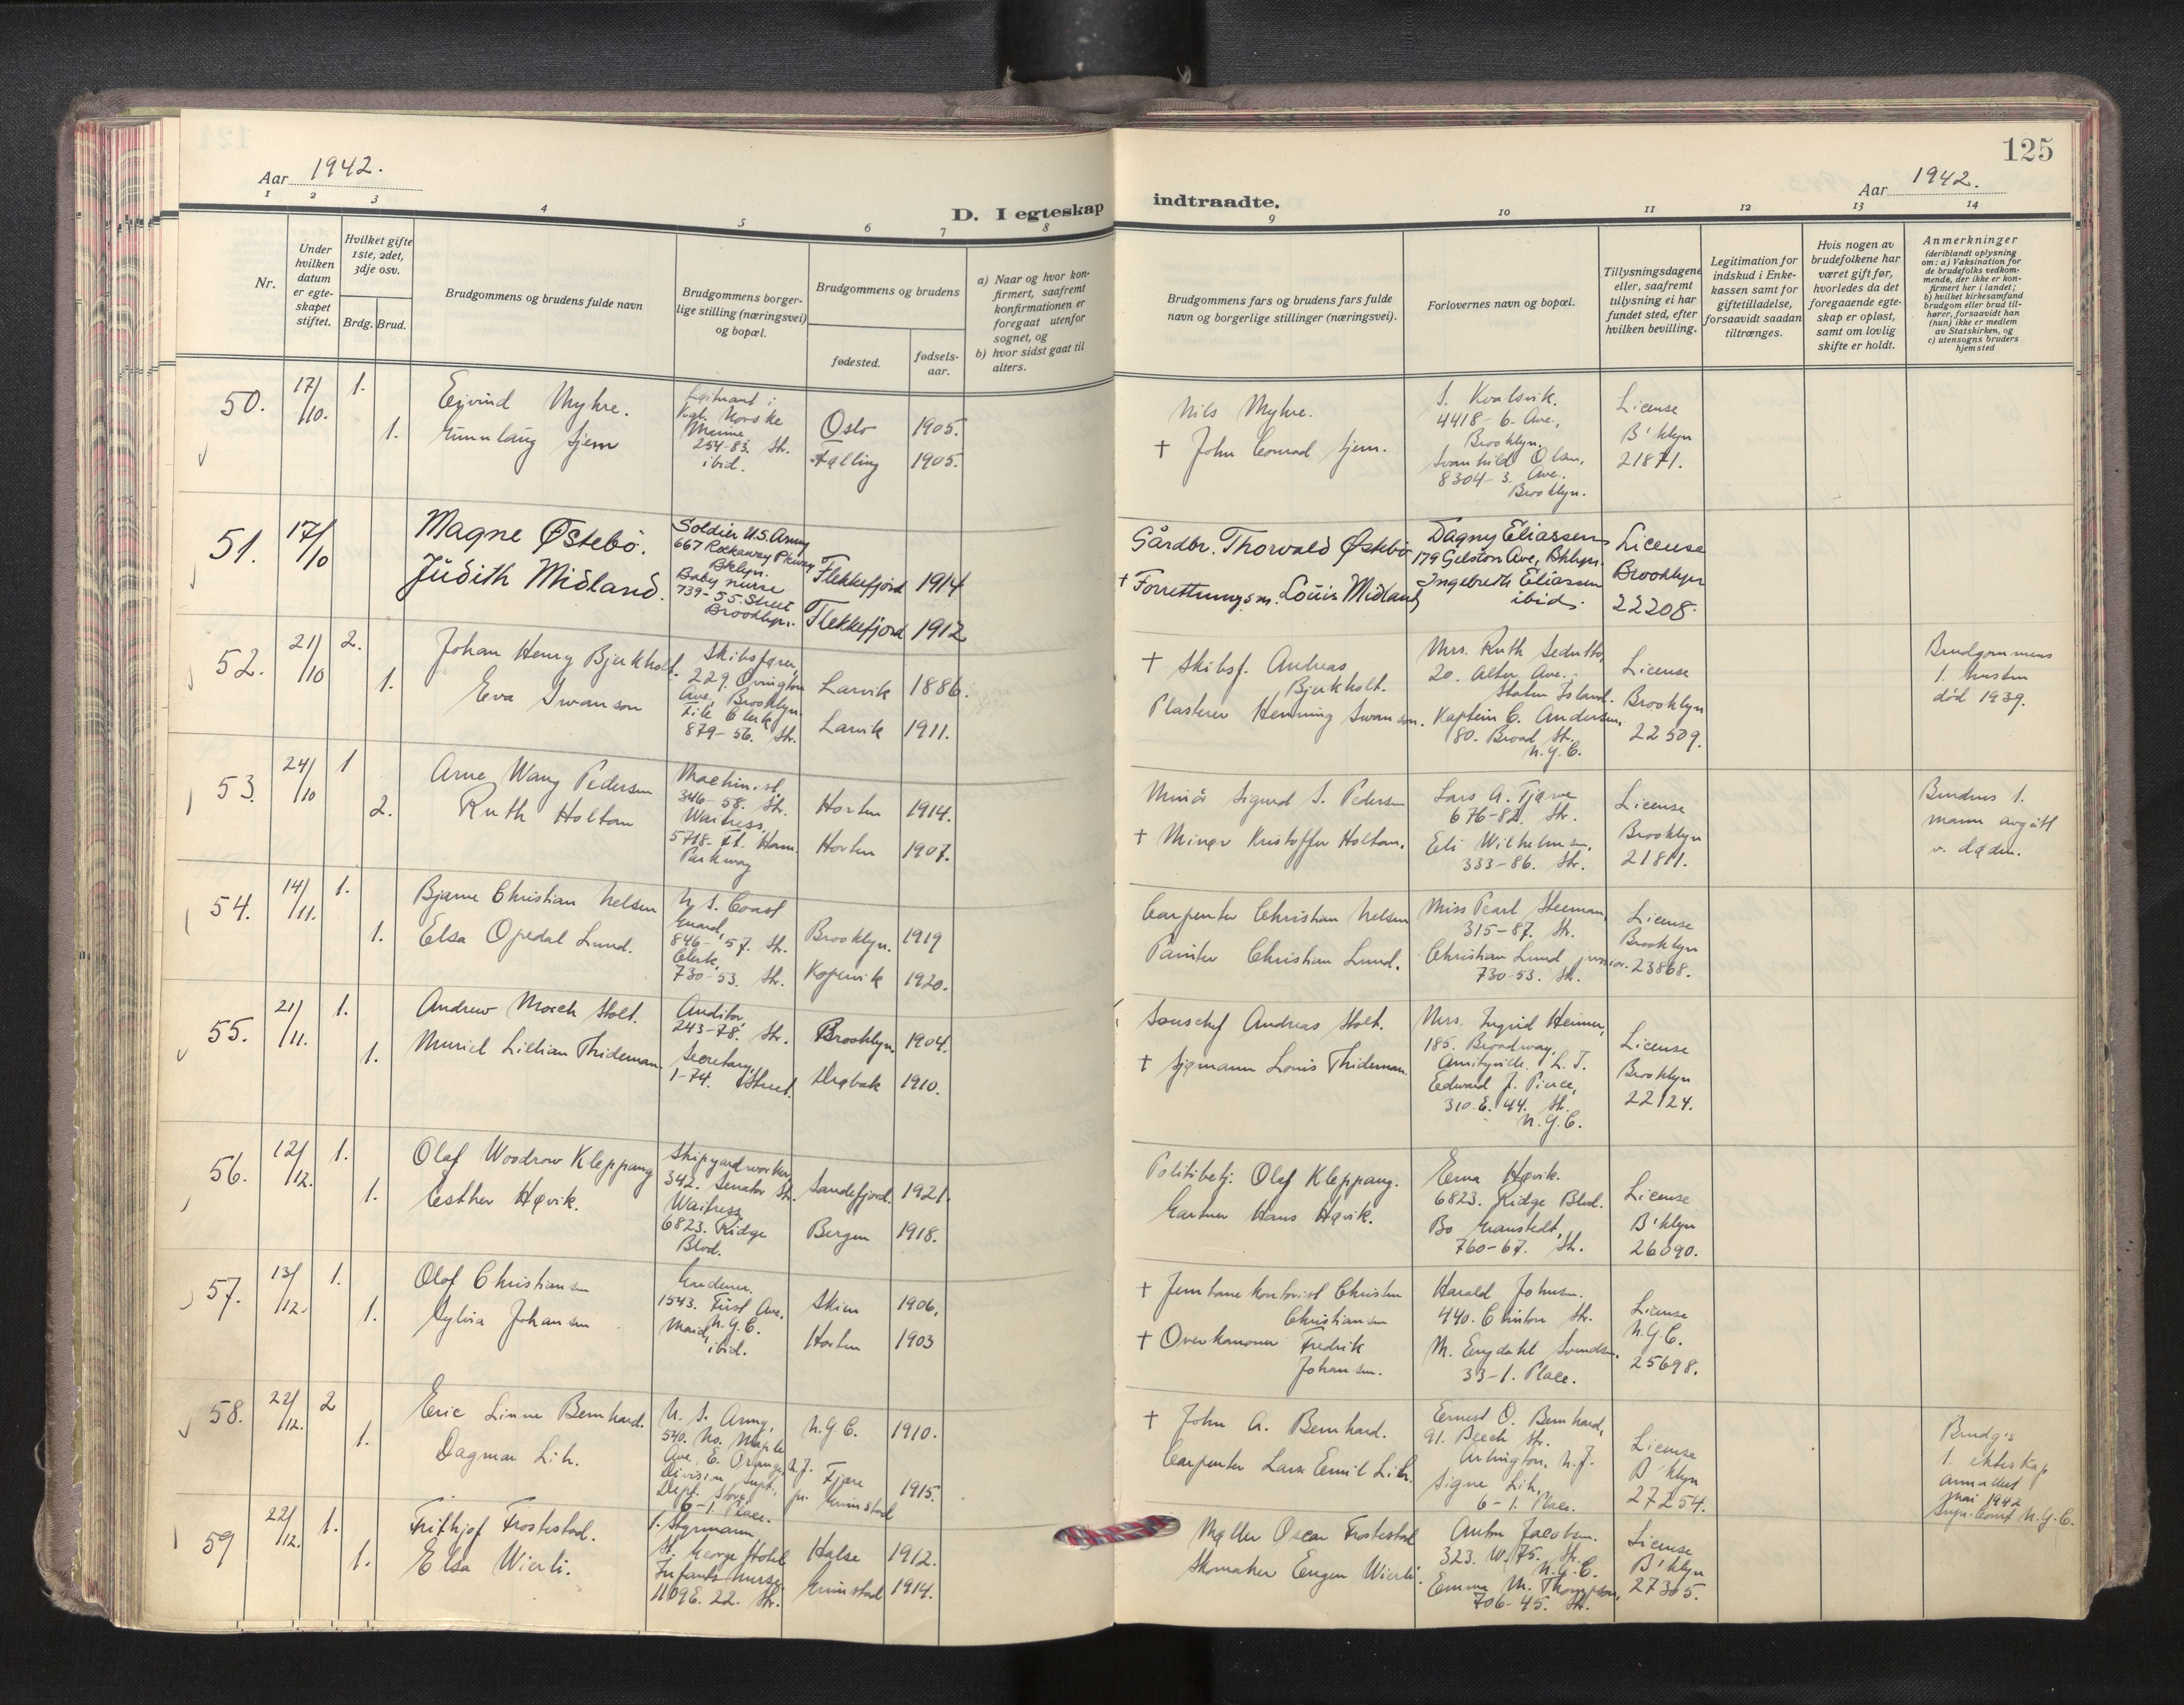 125
Aar 1942.
Aar 1942.
D. I egteskap indtraadte.
1 2 3 4 5 6 7 8 9 10 11 12 13 14
Nr.
Under hvilken datum er egte-skapet stiftet.
Hvilket gifte 1ste, 2det, 3dje osv.
Brdg. Brud.
Brudgommens og brudens fulde navn
Brudgommens borger-
lige stilling (næringsvei)
og bopæl.
Brudgommens og brudens
fødested.
fødsels-
aar.
a) Naar og hvor kon-
firmert, saafremt
konfirmationen er
foregaat utenfor
sognet, og
b) hvor sidst gaat til
alters.
Brudgommens fars og brudens fars fulde
navn og borgerlige stillinger (næringsvei).
Forlovernes navn og bopæl.
Tillysningsdagene
eller, saafremt
tillysning ei har
fundet sted, efter
hvilken bevilling.
Legitimation for
indskud i Enke-
kassen samt for
giftetilladelse,
forsaavidt saadan
tiltrænges.
Hvis nogen av
brudefolkene har
været gift før,
hvorledes da det
foregaaende egte-
skap er opløst,
samt om lovlig
skifte er holdt.
Anmerkninger
(deriblandt oplysning
om: a) Vaksination for
de brudefolks vedkom-
mende, der ikke er kon-
firmert her i landet;
b) hvilket kirkesamfund
brudgom eller brud til-
hører, forsaavidt han
(hun) ikke er medlem
av Statskirken, og
c) utensogns bruders
hjemsted
50. 17/10. 1. 1.
Ejvind Myhre.
Gunnlaug Gjem
Løitnant i
Kgl. Norske
Marine
254-83. Str.
ibid.
Oslo 1905.
1905.
Nils Myhre.
† John Conrad Gjem.
S. Kvalsvik.
4418-6. Ave.,
Brooklyn.
Svanhild Olsen,
8304-3. Ave.
Brooklyn.
License
B'klyn
21871.
51. 17/10
Magne Østebö.
Judith Midland.
Soldier U.S. Army
667 Rockaway Pkway
Bklyn.
Baby nurse
739-55. Street
Brooklyn.
Flekkefjord 1914
Flekkefjord 1912
Gårdbr. Thorvald Østebö
† Forretningsm. Louis Midland
Dagny Eliassen
179 Gelston Ave, Bklyn.
Ingebreth Eliassen
ibid.
License
Brooklyn
22208.
52. 21/10 2. 1.
Johan Henry Bjerkholt.
Eva Swanson
Skibsfører,
229. Ovington
Ave, Brooklyn.
File Clerk
879-56. Str.
Larvik 1886.
Larvik 1911.
† Skibsf. Andreas
Bjerkholt.
Plasterer Henning Swanson.
Mrs. Ruth Sedutto,
20. Alter Ave.
Staten Island.
Kaptein C. Andersen,
80. Broad Str.
N.Y.C.
License
Brooklyn
22509.
Brudgommens
1. hustru
død 1939.
53. 24/10 1 2.
Arne Wang Pedersen
Ruth Holtan
Machinist,
346-58. Str.
Waitress,
5718. Ft. Ham.
Parkway
Horten 1914.
Horten 1907.
Minør Sigurd S. Pedersen
† Minør Kristoffer Holtan.
Lars A. Tjørve
676-82. Str.
Eli Wilhelmsen,
333-86. Str.
License
Brooklyn
21811.
Brudens 1.
mann avgått
v. døden.
54. 14/11. 1. 1.
Bjarne Christian Nelsen
Elsa Opedal Lund.
U. S. Coast
Guard,
846-57. Str.
Clerk,
730-53. Str.
Brooklyn. 1919
Kopervik 1920.
Carpenter Christian Nelsen
Painter Christian Lund.
Miss Pearl Steeman,
315-87. Str.
Christian Lund junior.
730-53. Str.
License
Brooklyn
23868.
55. 21/11. 1. 1.
Andrew Morch Holt.
Muriel Lillian Thideman.
Auditor,
243-78. Str.
Secretary,
1-74. Street.
Brooklyn. 1904.
Drøbak 1910.
Andreas Holt.
† Sjømann Louis Thideman
Mrs. Ingrid Heimer,
185. Broadway,
Amityville. L. I.
Edward J. Pierce,
310. E. 44. Str.
N.Y.C.
License
Brooklyn
22124.
56. 12/12. 1. 1.
Olaf Woodrow Kleppang
Esther Høvik.
Shipyardworker,
342. Senator Str.
Waitress
6823. Ridge
Blvd.
Sandefjord. 1921.
Bergen 1918.
Politibetj. Olaf Kleppang.
Gartner Hans Høvik.
Erna Høvik.
6823. Ridge Blvd.
Bo Granstedt,
760-67. Str.
License
B'klyn
26090.
57. 13/12. 1. 1.
Olaf Christiansen
Sylvia Johansen
Gardener.
1543. First Ave.
N.Y.C.
Maid,
ibid.
Skien 1906.
Horten 1903
† Jernbanekontorist Christen
Christiansen
† Overkanoner Fredrik
Johansen.
Harald Johnsen.
440. Clinton Str.
M. Engdahl Svendsen.
33-1. Place.
License
N.Y.C.
25698.
58. 22/12. 2 1.
Eric Linne Bernhard.
Dagmar Lih.
U. S. Army,
540. No. Maple
Ave. E. Orange, N.J.
Division Supt.
Dept. Store,
6-1. Place.
N.Y.C. 1910.
Fjære
pr. Grimstad 1915.
† John A. Bernhard.
Carpenter Lars Emil Lih.
Ernest O. Bernhard,
91. Beech Str.
Arlington, N.J.
Signe Lih,
6-1. Place.
License
B'klyn
27254.
Brudg's
1. ekteskap
annulled
mai 1942
Supr. Court N.Y.C.
59 22/12. 1. 1.
Frithjof Frostestad.
Elsa Wierli.
1. Styrmann,
St. George Hotel
Infants nurse,
1109 E. 22. Str.
Halse 1912.
Grimstad 1914.
Møller Oscar Frostestad
Skomaker Eugen Wierli.
Anton Jacobsen.
323. W. 75. Str.
N.Y.C.
Emma M. Thompson,
706-45. Str.
License
B'klyn
27305.